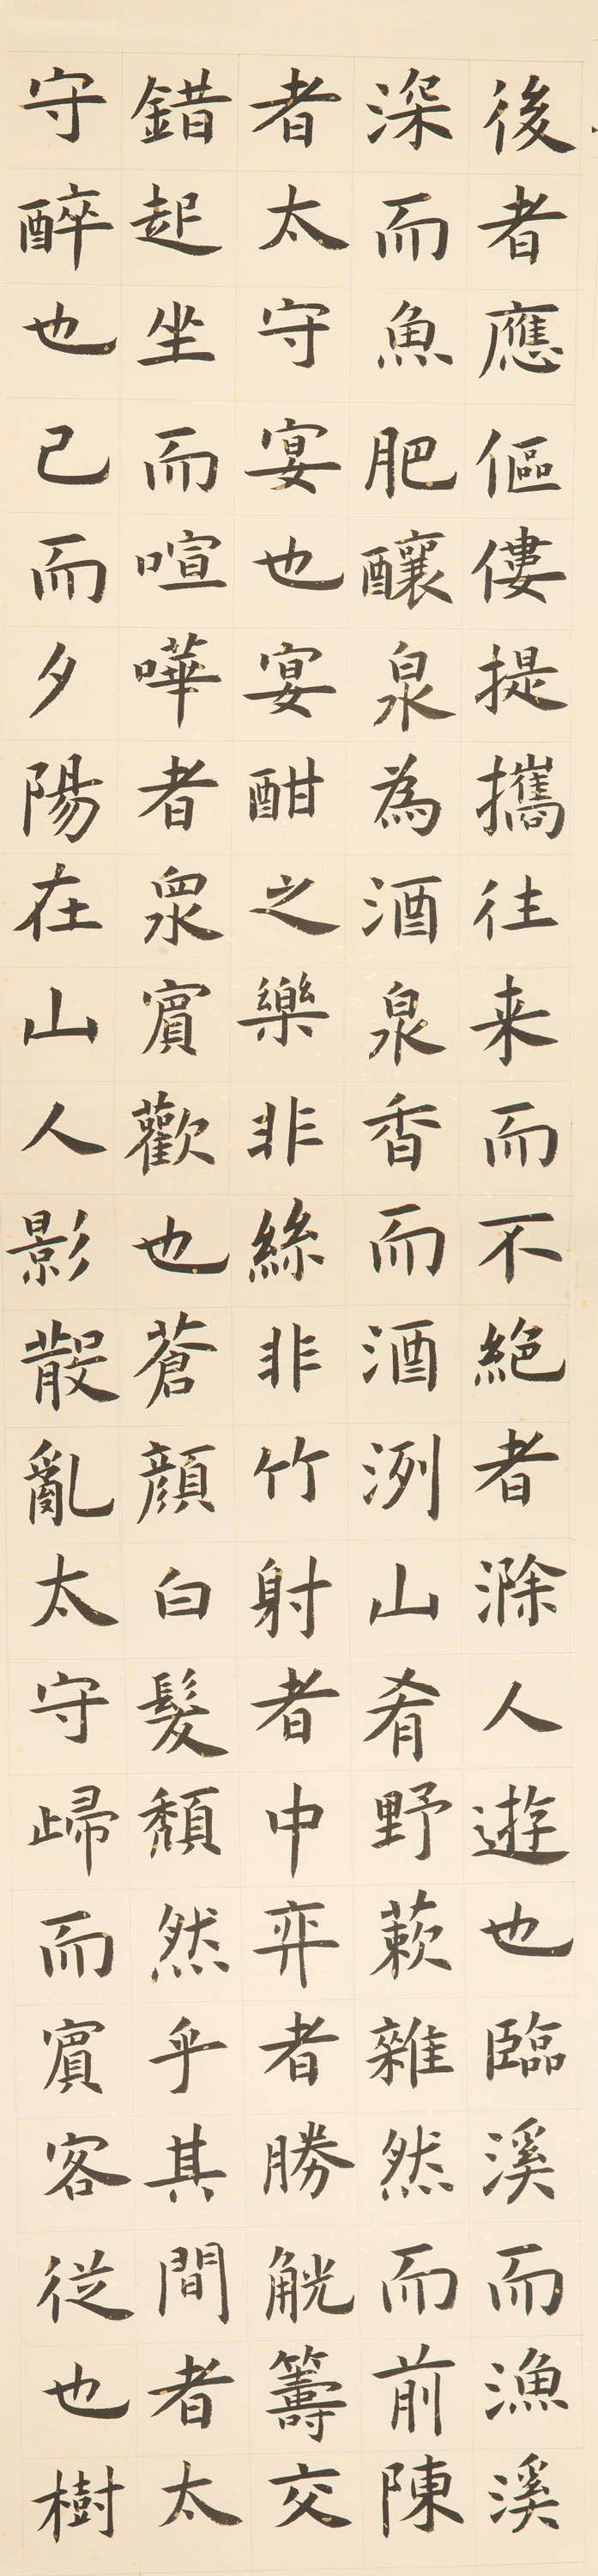 後者應傴僂提攜往来而不絕者滁人遊也臨溪而漁溪
深而魚肥釀泉為酒泉香而酒洌山肴野蔌雜然而前陳
者太守宴也宴酣之樂非絲非竹射者中弈者勝觥籌交
錯起坐而喧嘩者眾賓歡也蒼顏白髮頹然乎其間者太
守醉也已而夕陽在山人影散亂太守歸而賓客從也樹